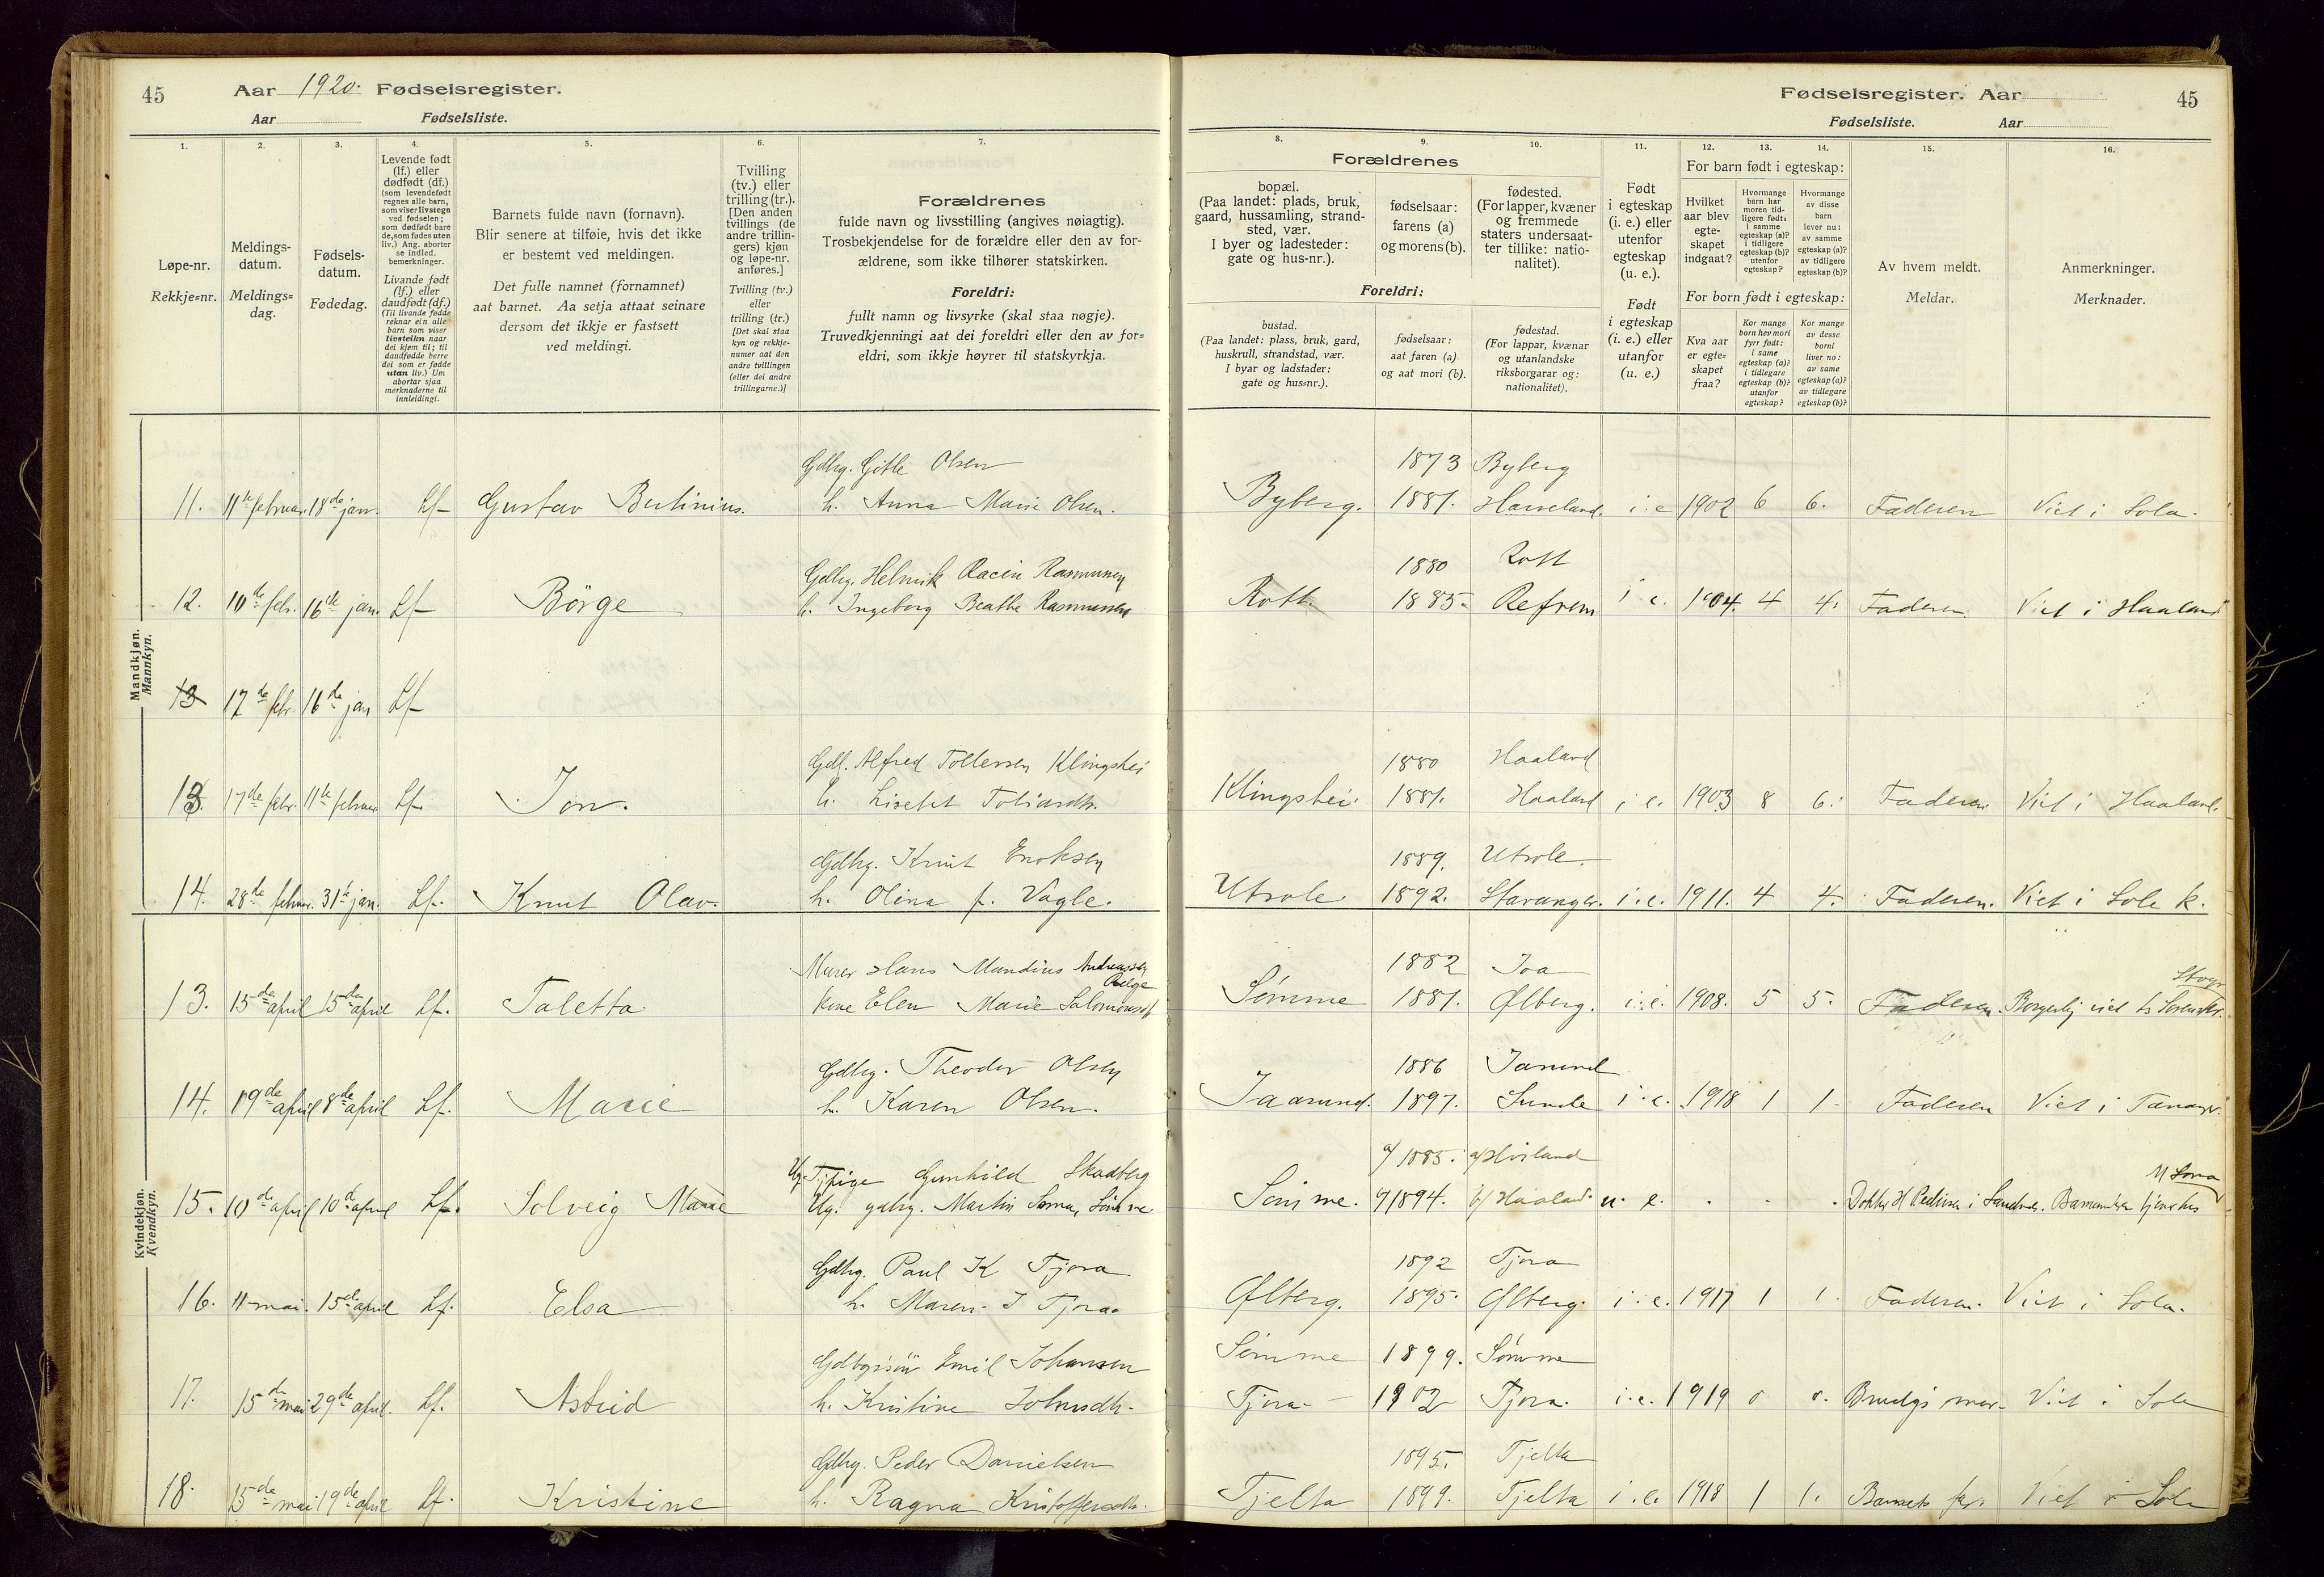 45
Aar 1920. Fødselsregister.
Aar Fødselsliste.
1. 2. 3. 4. 5. 6. 7.
Løpe-nr.
Rekkje=nr.
Meldings-
datum.
Meldings=
dag.
Fødsels-
datum.
Fødedag.
Levende født
(lf.) eller
dødfødt (df.)
(som levendefødt
regnes alle barn,
som viser livstegn
ved fødselen;
som dødfødt bare
de, som fødes uten
liv.) Ang. aborter
se indled.
bemerkninger.
Livande født
(lf.) eller
daudfødt (df.)
(Til livande fødde
reknar ein alle
barn som viser
livsteikn naar
dei kjem til; til
daudfødde berre
dei som er fødde
utan liv.) Um
abortar sjaa
merknaderne til
innleidingi.
Barnets fulde navn (fornavn).
Blir senere at tilføie, hvis det ikke
er bestemt ved meldingen.
Det fulle namnet (fornamnet)
aat barnet. Aa setja attaat seinare
dersom det ikkje er fastsett
ved meldingi.
Tvilling
(tv.) eller
trilling (tr.).
[Den anden
tvillings (de
andre trillin-
gers) kjøn
og løpe-nr.
anføres.]
Tvilling (tv.)
eller
trilling (tr.)
[Det skal staa
kyn og rekkje-
numer aat den
andre tvillingen
(eller dei andre
trillingarne.)]
Forældrenes
fulde navn og livsstilling (angives nøiagtig).
Trosbekjendelse for de forældre eller den av for-
ældrene, som ikke tilhører statskirken.
Foreldri:
fullt namn og livsyrke (skal staa nøgje).
Truvedkjenningi aat dei foreldri eller den av for=
eldri, som ikkje høyrer til statskyrkja.
Mandkjøn.
Mannkyn.
Gdbg. Gitle Olsen
11. 11te februar. 18de jan. Lf Gustav Bertinius. h. Anna Marie Olsen.
Gdbg. Helmik Racin Rasmussen
12. 10de febr. 16de jan. Lf Börge h. Ingeborg Beathe Rasmussen
13 17de febr. 16de jan Lf
Gdb. Alfred Tollersen Klingshei
13. 17de febr. 11te februar Lf. Jon. h. Lisebet Tobiasdtr.
Gdbg. Knut Eriksen
14. 28de februar. 31te jan. Lf. Knut Olav. h. Olina f. Vagle.
Kvindekjøn.
Kvendkyn.
Murer Hans Mandius Andreassen
Rælge
13. 15de april 15de april Lf. Taletta. Kone Elen Marie Salomonsdtr
Gdbg. Theodor Olsen
14. 19de april 8de april Lf. Marie h. Karen Olsen.
Ug. Tj.pige Gunhild Skadberg
15. 10de april 10de april Lf. Solveig Marie Ug. gdbg. Martin Soma, Sömme
Gdbg. Paul K Tjora
16. 11 mai. 15de april Lf. Elsa h. Maren J Tjora
Gdbgrsön Emil Johansen
17. 15de mai 29de april. Lf. Astrid h. Kristine Johnsdtr.
Gdbg. Peder Danielsen
18. 15de mai 19de april Lf. Kristine h. Ragna Kristoffersdtr.
Fødselsregister. Aar
45
Fødselsliste. Aar
8. 9. 10. 11. 12. 13. 14. 15. 16.
Forældrenes
bopæl.
(Paa landet: plads, bruk,
gaard, hussamling, strand-
sted, vær.
I byer og ladesteder:
gate og hus-nr.).
fødselsaar:
farens (a)
og morens (b).
fødested.
(For lapper, kvæner
og fremmede
staters undersaat-
ter tillike: natio-
nalitet).
Foreldri:
bustad.
(Paa landet: plass, bruk, gard,
huskrull, strandstad, vær.
I byar og ladstader:
gate og hus=nr.).
fødselsaar:
aat faren (a)
og aat mori (b).
fødestad.
(For lappar, kvænar
og utanlandske
riksborgarar og:
nationalitet).
Født
i egteskap
(i. e.) eller
utenfor
egteskap
(u. e.).
Født
i egteskap
(i. e.) eller
utanfor
(u. e.)
For barn født i egteskap:
Hvilket
aar blev
egte-
skapet
indgaat?
Hvormange
barn har
moren tid-
ligere født:
i samme
egteskap (a)?
i tidligere
egteskap (b)?
utenfor
egteskap?
Hvormange
av disse
barn
lever nu:
av samme
egteskap (a)?
av tidligere
egteskap (b)?
For born født i egteskap:
Kva aar
er egte=
skapet
fraa?
Kor mange
born hev mori
fyrr født:
i same
egteskap (a)?
i tidlegare
egteskap (b)?
utanfor
egteskap?
Kor mange
av desse
borni
liver no:
av same
egteskap (a)?
av tidlegare
egteskap (b)?
Av hvem meldt.
Meldar.
Anmerkninger.
Merknader.
1873 Byberg
Byberg. 1881. Harveland. i. e 1902 6 6. Faderen Viet i Sola.
1880 Rott
Rott. 1885. Refsnes i. e. 1904. 4 4. Faderen. Viet i Haaland
1880 Haaland
Klingshei. 1881. Haaland i. e. 1903 8 6. Faderen. Viet i Haaland.
1889. Utsole.
Utsole. 1892. Stavanger. i. e. 1911. 4 4. Faderen. Viet i Sole k.
1882 Joa
Sömme 1881. Ølberg. i. e. 1908. 5 5. Faderen. Borgerlig viet
1886 Jasund
Jaasund. 1897. Sunde i. e. 1918 1 1 Faderen Viet i Tananger.
a/ 1885. a/ Hviland
M Soma
Sömme. b/ 1894. b/ Haaland. u. e. . . . Dokter H Pedersen i Sandnes. Barnemoren tjener hos
1892 Tjora
Ølberg. 1895. Ølberg. i. e. 1917 1 1 Faderen. Viet i Sola.
Sömme 1899. Sömme
Tjora. 1902 Tjora. i. e. 1919 0 0. Viet i Sole
1895. Tjelta
Tjelta 1899. Tjelta i. e. 1918 1 1. Barnets far. Viet i Sole